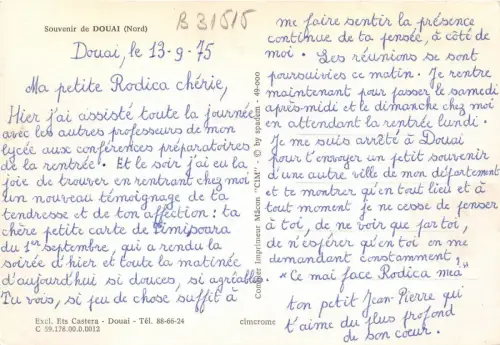 Souvenir de DOUAI (Nord)
B 31515
Douai, le 13-9-75
Ma petite Rodica chérie,
Hier j'ai assisté toute la journée
avec les autres professeurs de mon
lycée aux conférences préparatoires
de la rentrée. Et le soir j'ai eu la
joie de trouver en rentrant chez moi
un nouveau témoignage de ta
tendresse et de ton affection : ta
chère petite carte de Timişoara
du 1er septembre, qui a rendu la
soirée d'hier et toute la matinée
d'aujourd'hui si douces, si agréables.
Tu vois, si peu de chose suffit à
Excl. Ets Castera - Douai - Tél. 88-66-24
C 59.178.00.0.0012
cimcrome
Combier Imprimeur Mâcon "CIM" - © by spadem - 49-000
me faire sentir la présence
continue de ta pensée, à côté de
moi. Les réunions se sont
poursuivies ce matin. Je rentre
maintenant pour passer le samedi
après-midi et le dimanche chez moi
en attendant la rentrée lundi.
Je me suis arrêté à Douai
pour t'envoyer un petit souvenir
d'une autre ville de mon département
et te montrer qu'en tout lieu et à
tout moment je ne cesse de penser
à toi, de ne voir que par toi,
de n'espérer qu'en toi en me
demandant constamment,
"Ce mai face Rodica mea"
ton petit Jean-Pierre qui
t'aime du plus profond
de son cœur.